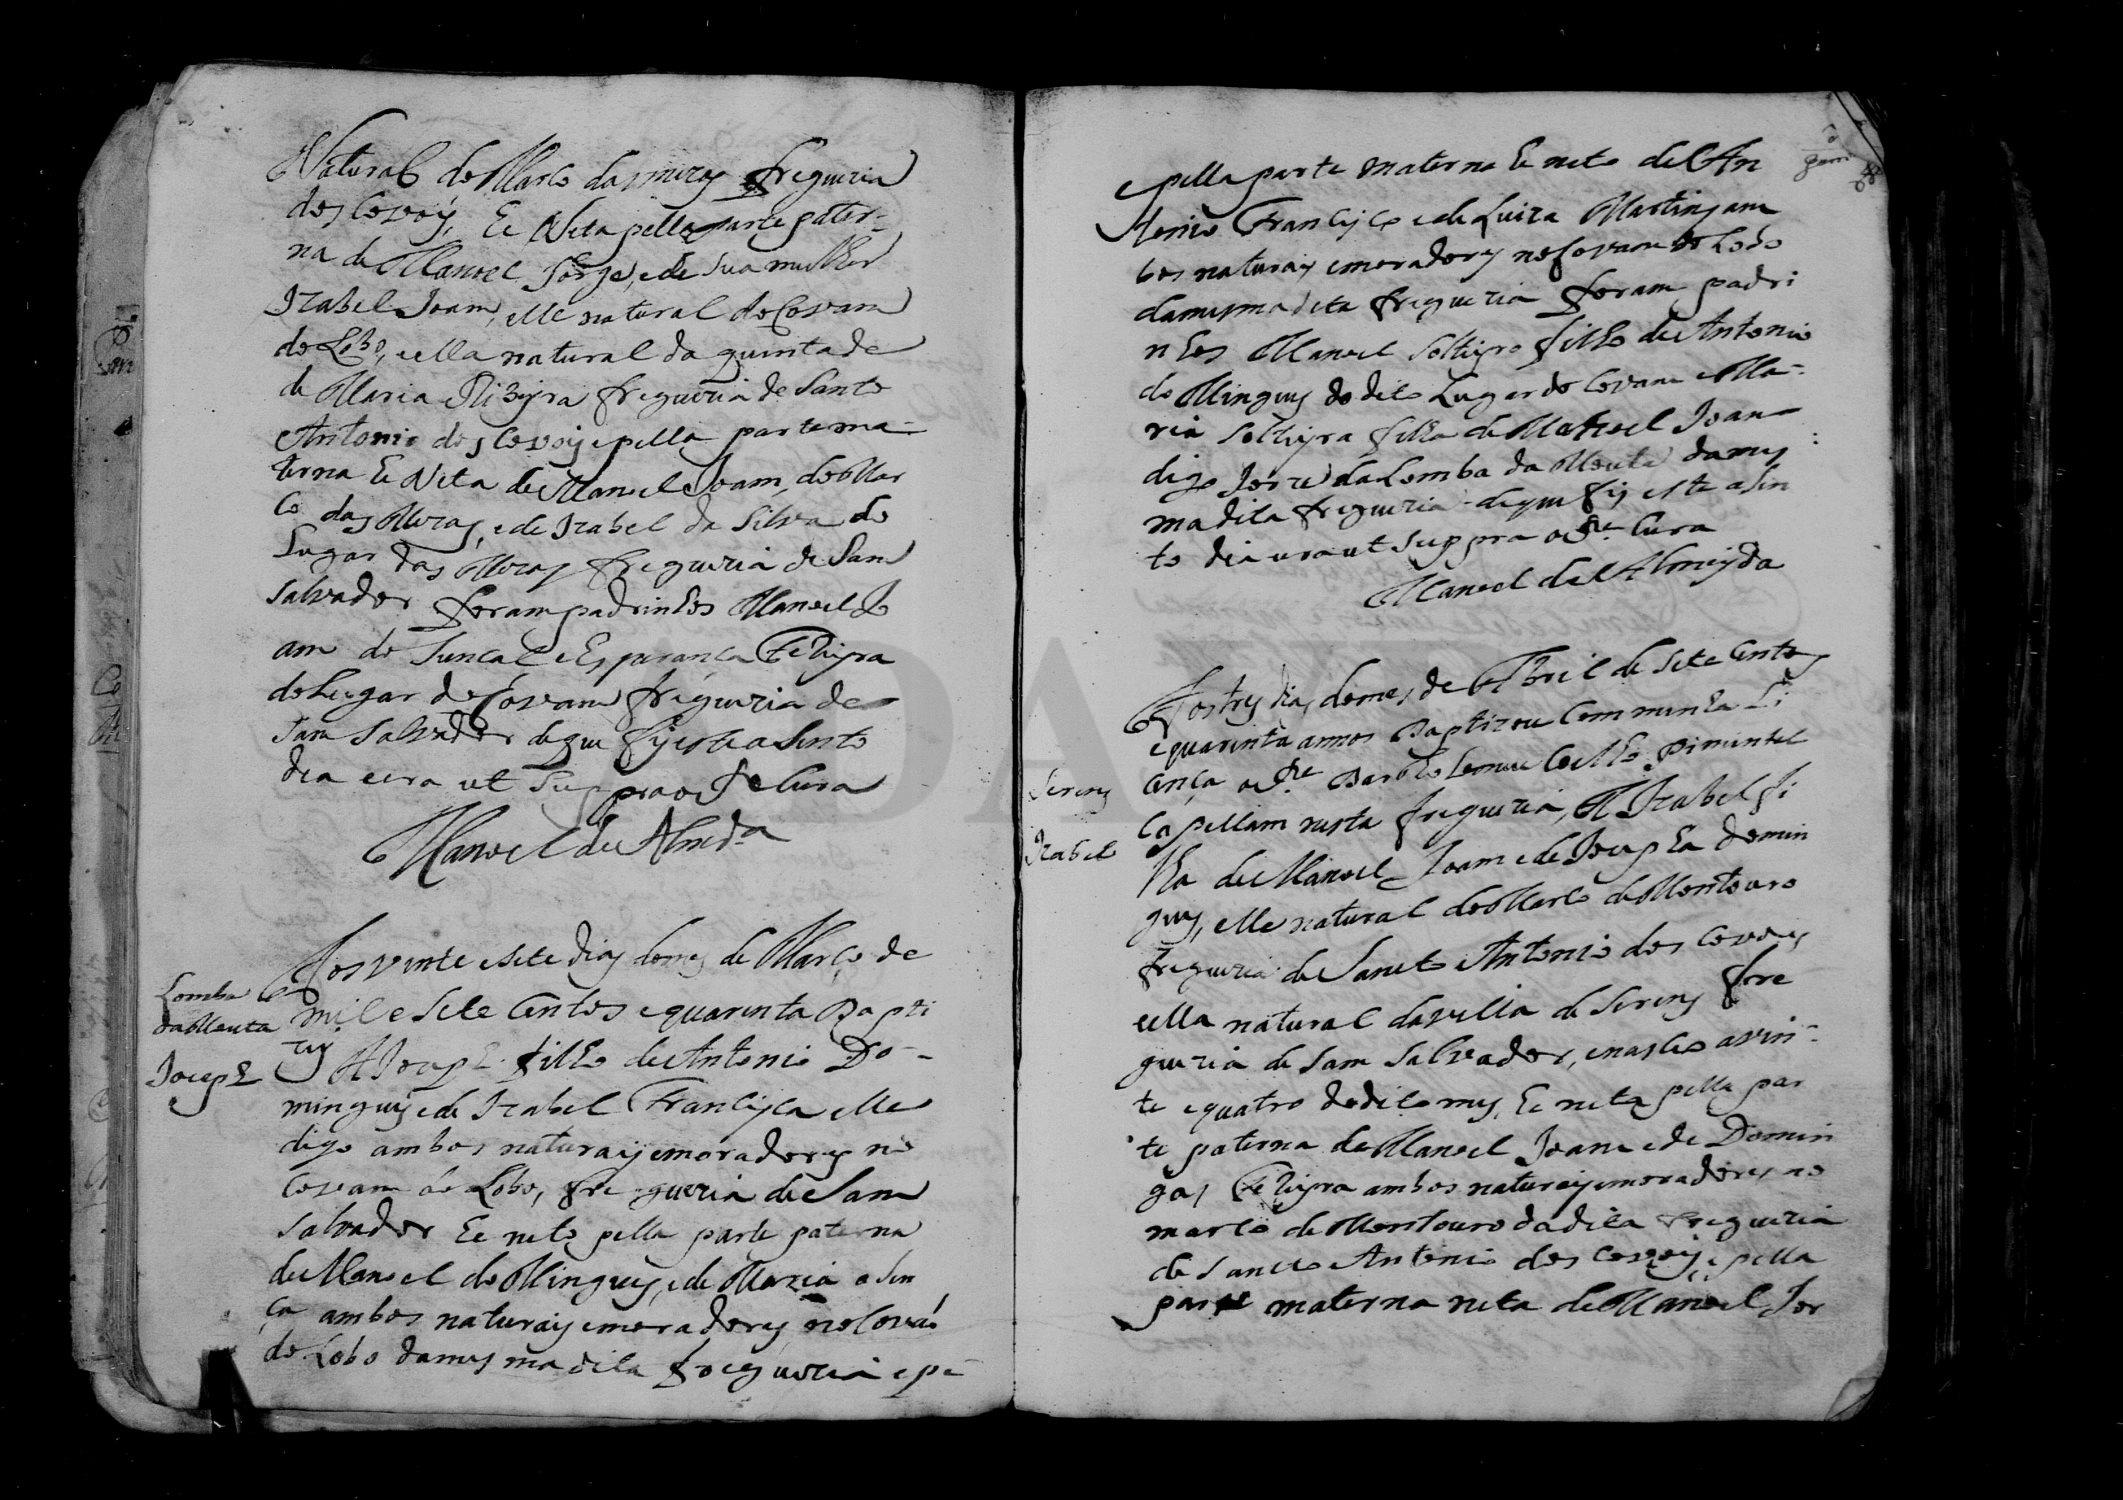 Natural do Marco das meras freguezia
dos Covois, he Neta pella parte pater-
na de Manoel Jorge, e de sua mulher
Izabel Joam, elle natural do Covam
do Lobo, e ella natural da quinta de
de Maria Ribeyra freguezia de Santo
Antonio dos Covois e pella parte ma-
terna he Neta de Manoel Joam, do Mar
co das Meras, e de Izabel da Silva do
Lugar das Meras freguezia de Sam
Salvador foram padrinhos Manoel Jo
am do Juncal e Esperança Ferreyra
do Lugar do Covam freguezia de
Sam Salvador de que fis este asento
dia e era ut suppra o Pe Cura
Manoel de Almda
Lomba
da Meuta
Joceph
Aos vinte e sete dias do mes de Março de
mil e sete centos e quarenta Bapti
zey A Joceph filho de Antonio Do-
mingues e de Izabel Francisca elle
digo ambos naturais e moradores no
Covam do Lobo, freguezia de Sam
Salvador he neto pella parte paterna
de Manoel do Mingues, e de Maria asen
ça ambos naturais e moradores no Covão
do Lobo da mesma dita freguezia e pe
e pella parte materna he neto de An
tonio Francisco e de Luiza Martins am
bos naturais e moradores no Covam do Lobo
da mesma dita freguezia foram padri
nhos Manoel solteyro filho de Antonio
do Mingues do dito Lugar do Covam e Ma-
ria solteyra filha de Manoel Joam
digo Jorze da Lomba da Meuta da mes
ma dita freguezia de que fis este asen
to dia era ut suppra o Pe Cura
Manoel de Almeyda
Sereis
Izabel
Aos tres dias do mes de Abril de sete centos
e quarenta annos Baptizou com minha li
cença o Pe Bartholomeu Coelho Pimentel
Capellam nesta freguezia, A Izabel fi
lha de Manoel Joam e de Jocepha domin
gues, elle natural do Marco de Montouro
freguezia de Sancto Antonio dos Covois
e ella natural da villa de Sereis fre
guezia de Sam Salvador, e nasceo a vin-
te e quatro do dito mes, he neta pella par
te paterna de Manoel Joam e de Domin
gas Ferreyra ambos naturais e moradores no
marco de Montouro da dita freguezia
de Sancto Antonio dos Covois, e pella
parte materna neta de Manoel Jor